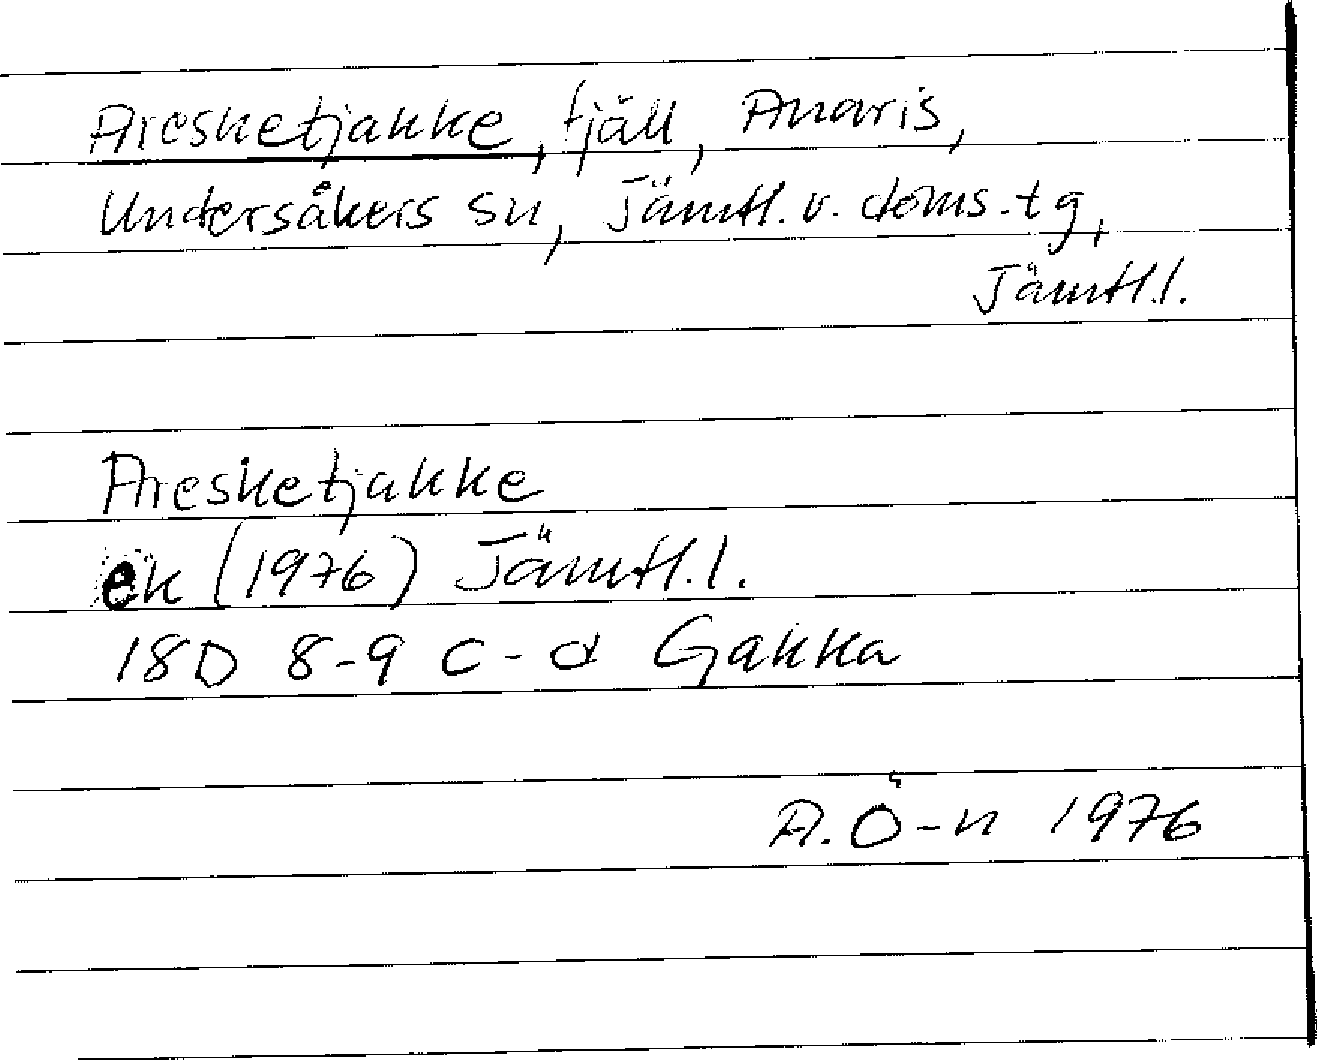 Aresketjakke, fjäll, Anaris,
Undersåkers sn, Jämtl. v. doms.-tg,
Jämtl.l.
Aresketjakke
ek (1976) Jämtl.l.
18D 8-9 c-d Gakka
A. Ö-n 1976